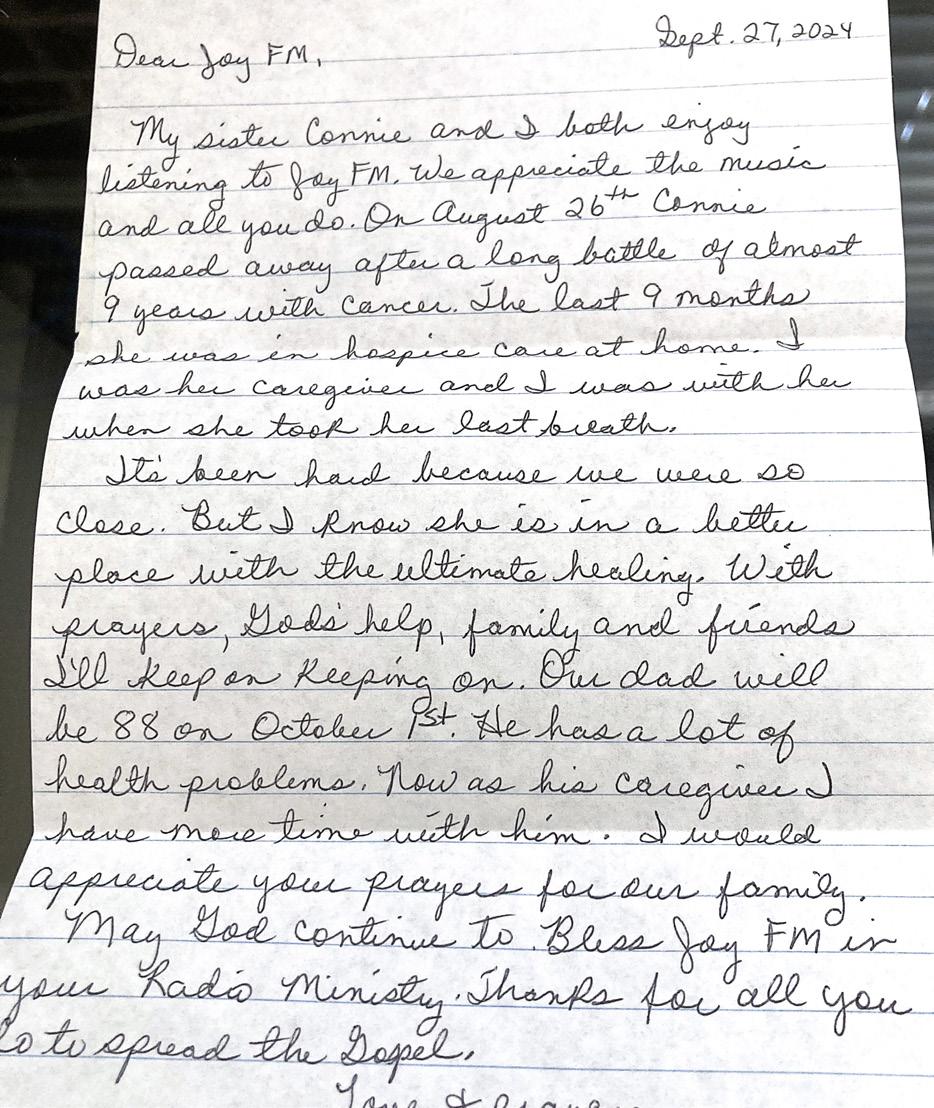 Sept. 27, 2024
Dear Joy FM,
My sister Connie and I both enjoy
listening to Joy FM. We appreciate the music
and all you do. On August 26th Connie
passed away after a long battle of almost
9 years with cancer. The last 9 months
she was in hospice care at home. I
was her caregiver and I was with her
when she took her last breath.
It's been hard because we were so
close. But I know she is in a better
place with the ultimate healing. With
prayers, God's help, family and friends
I'll keep on keeping on. Our dad will
be 88 on October 1st. He has a lot of
health problems. Now as his caregiver I
have more time with him. I would
appreciate your prayers for our family.
May God continue to Bless Joy FM in
your Radio Ministry. Thanks for all you
do to spread the Gospel.
Love &